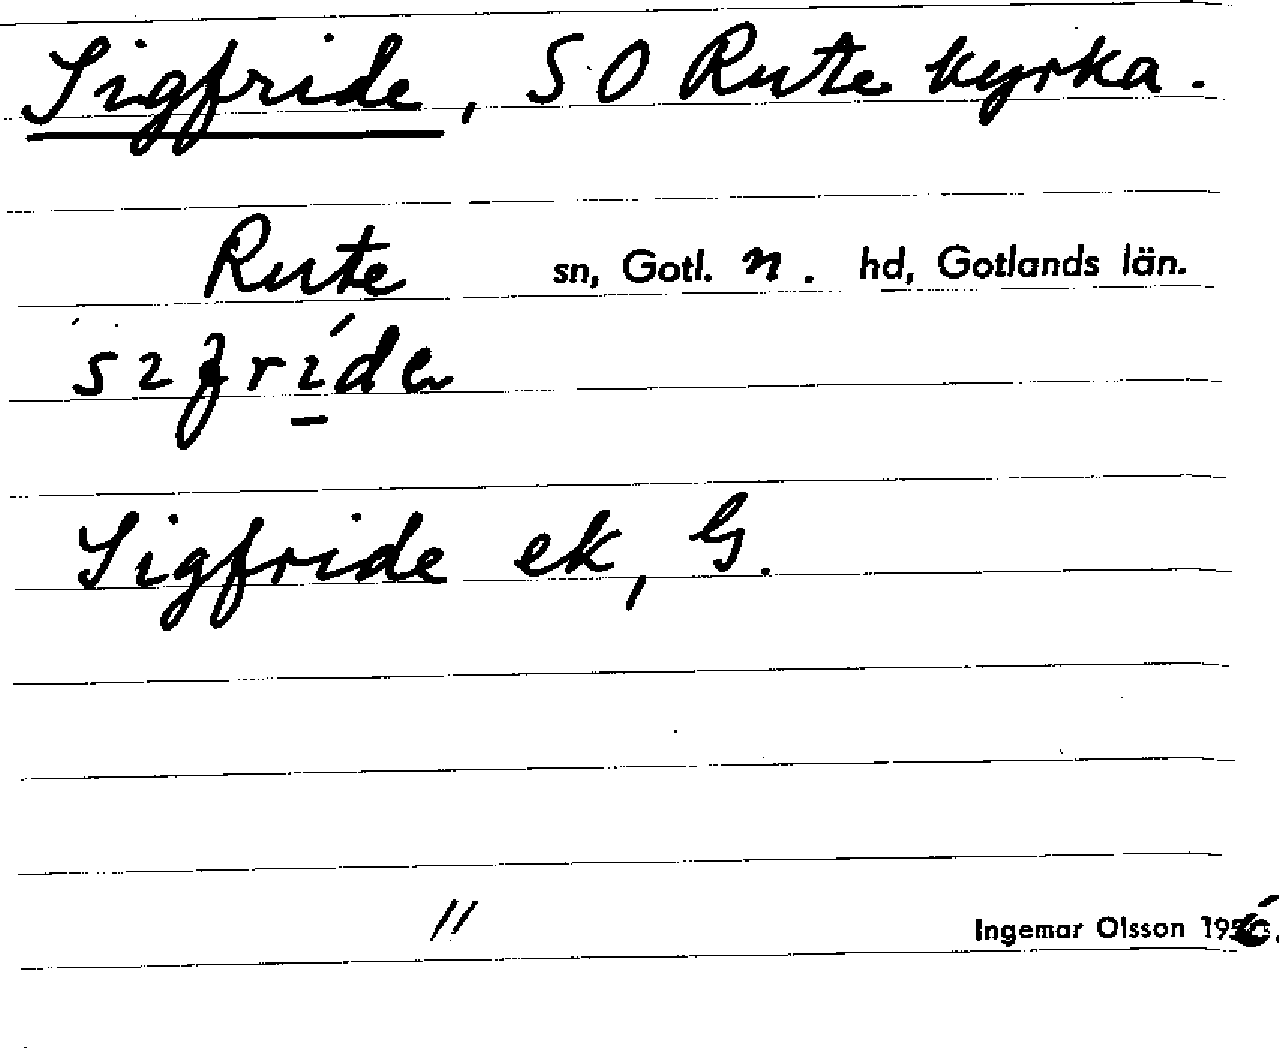 Sigfride, SO Rute kyrka.
Rute sn, Gotl. n. hd, Gotlands län.
Sigfride ek, G.
//
Ingemar Olsson